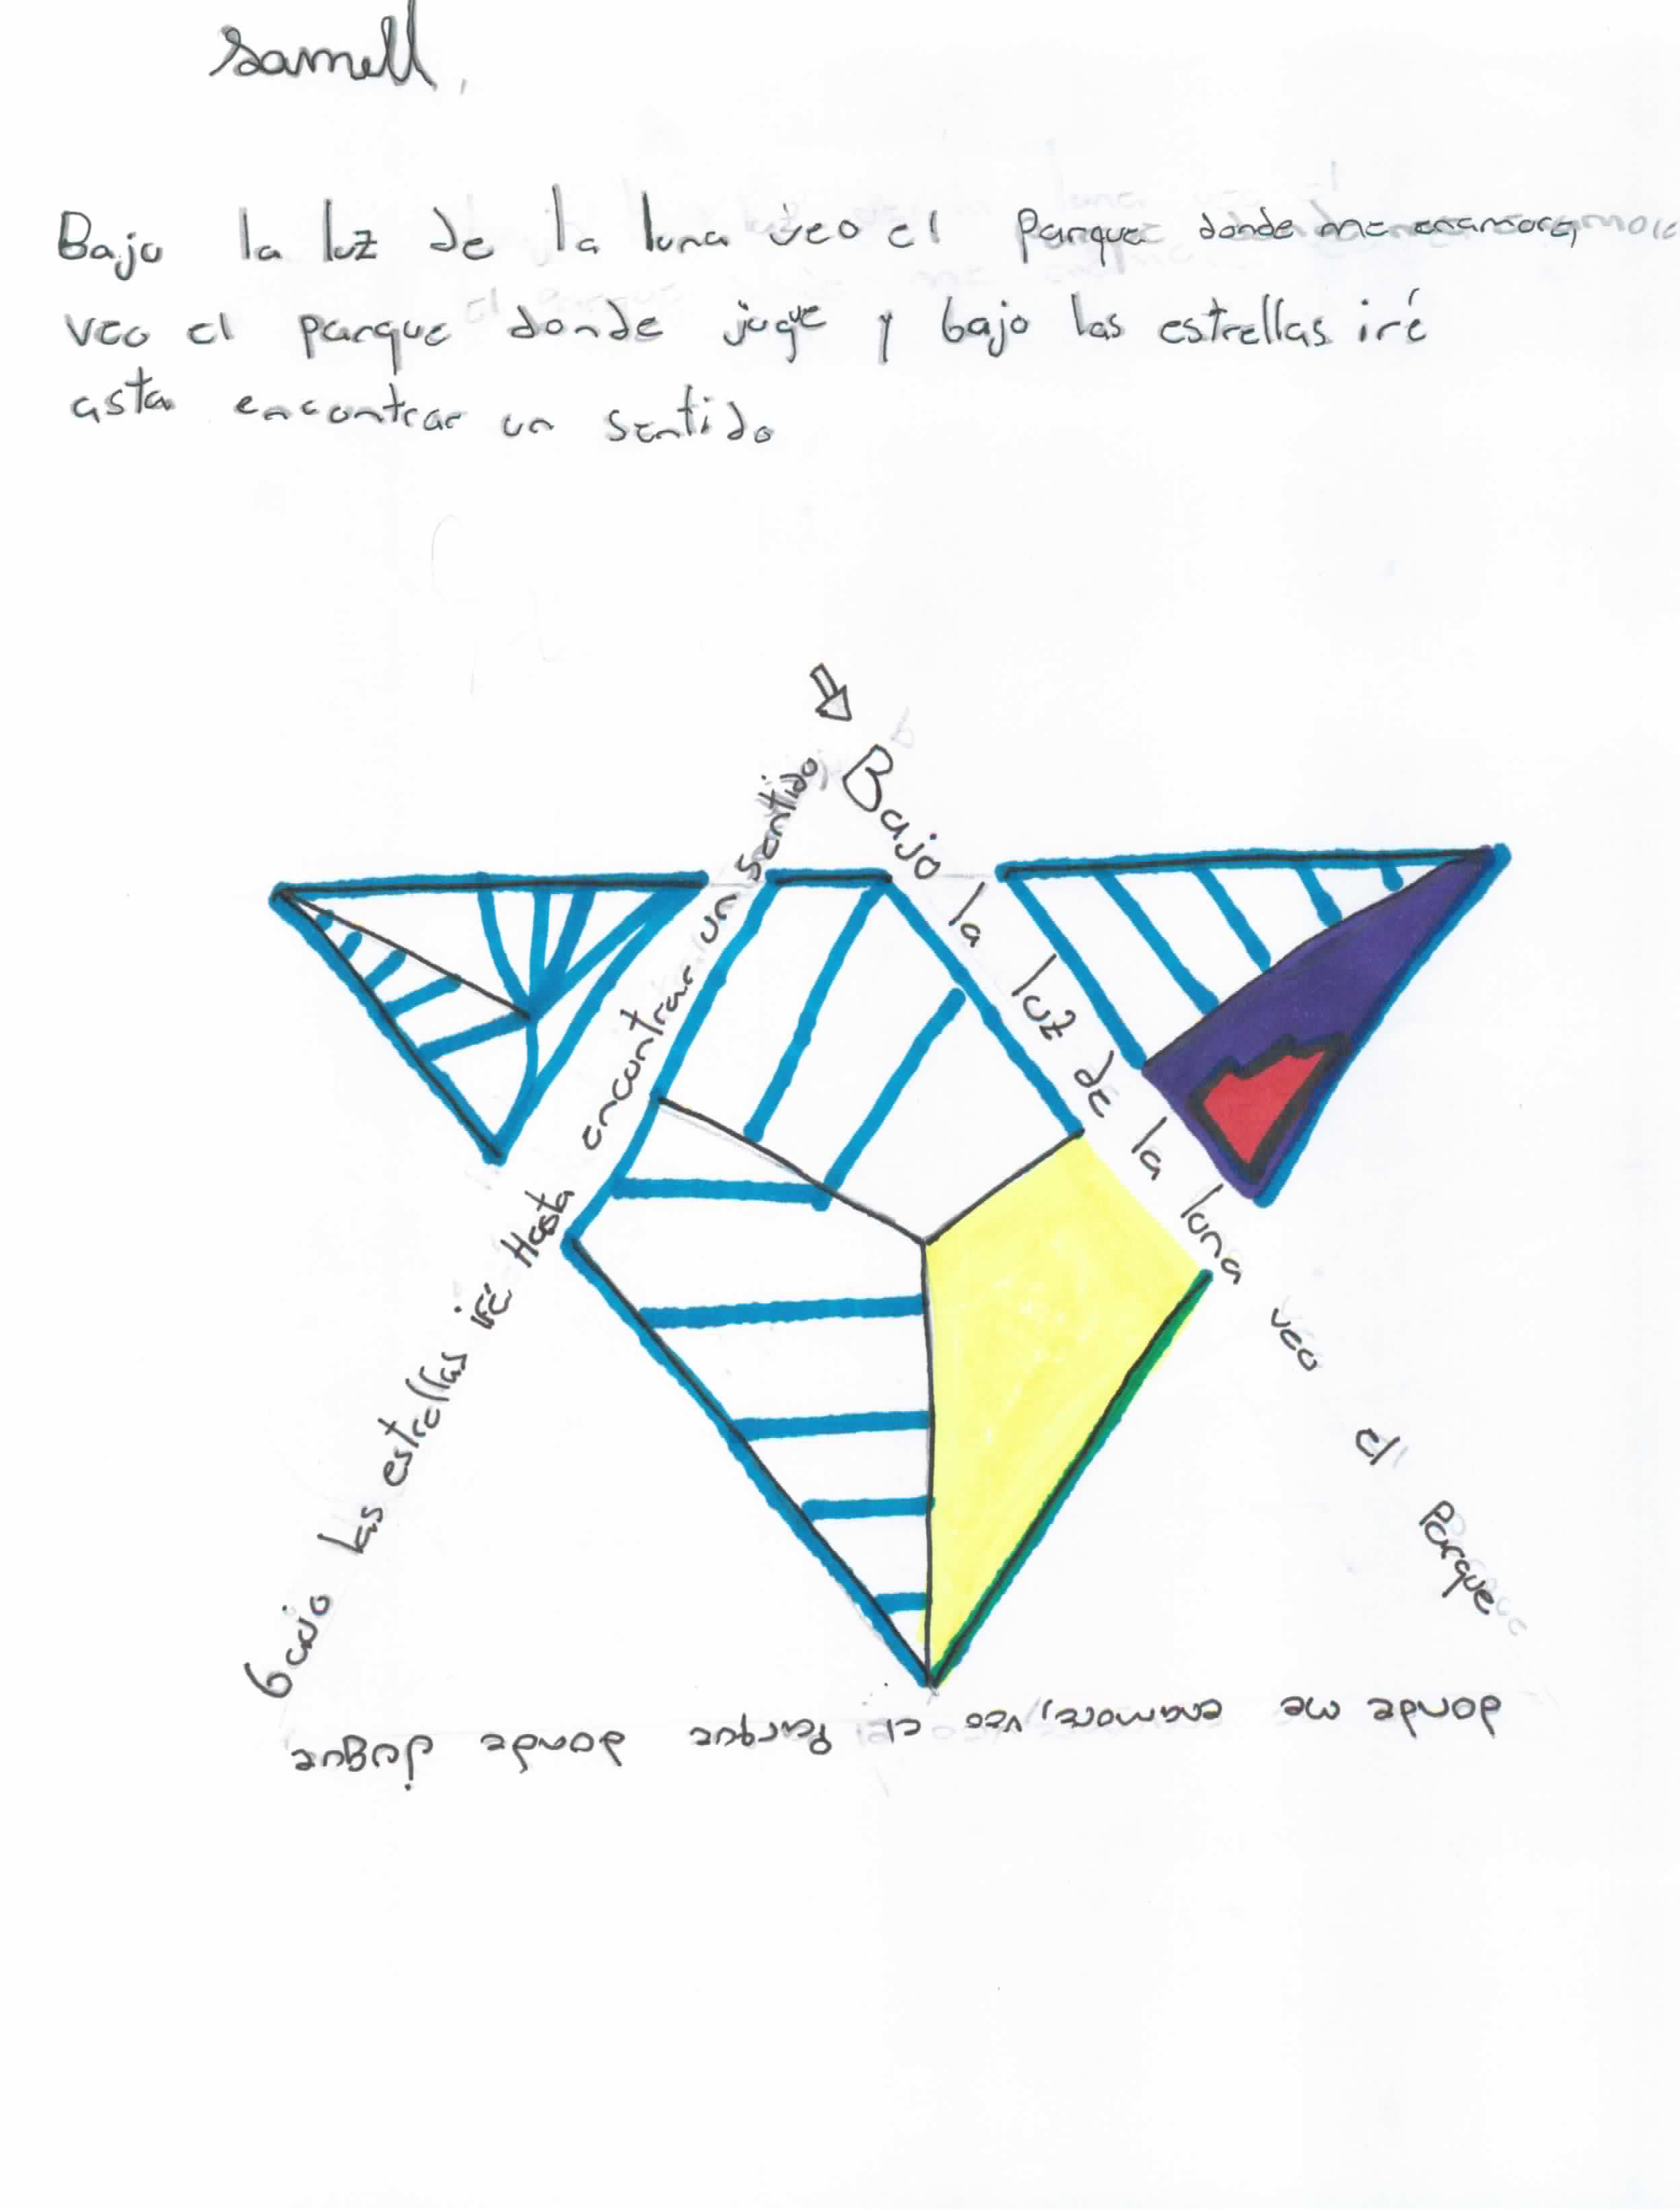 Samell,
Bajo la luz de la luna veo el Parque donde me enamore,
veo el parque donde jugue y bajo las estrellas iré
asta encontrar un sentido
Bajo la luz de la luna veo el Parque
donde me enamore, veo el Parque donde jugue
bajo las estrellas iré Hasta encontrar un sentido,